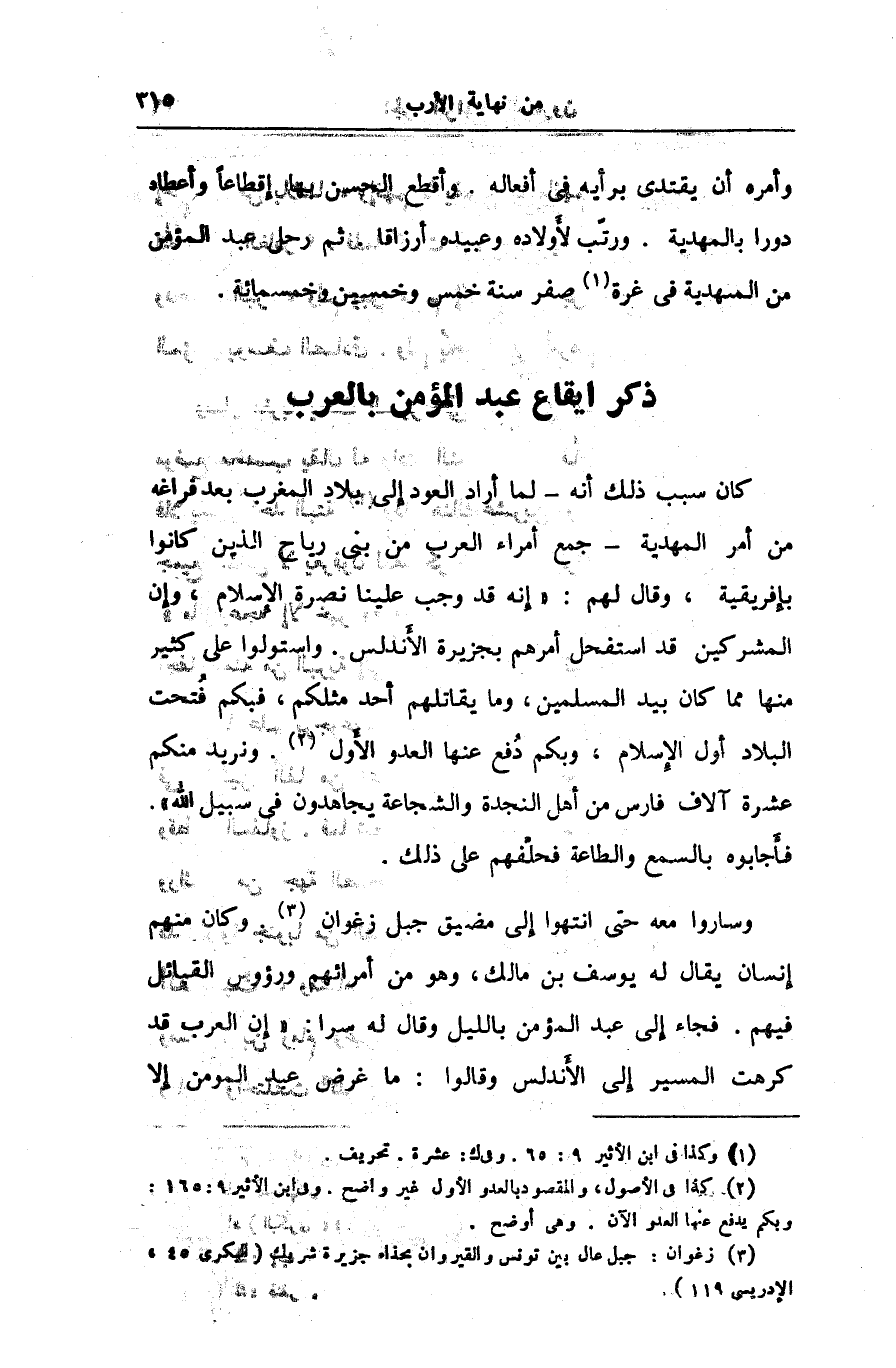 من نهاية الأرب ٣١٥
وأمره أن يقتدى برأيه فى أفعاله . وأقطع الحسين بها إقطاعاً وأعطاه
دورا بالمهدية . ورتّب لأَولاده وعبيده أرزاقا . ثم رحل عبد المؤمن
من المهدية فى غرة(١) صفر سنة خمس وخمسين وخمسمائة .
ذكر ايقاع عبد المؤمن بالعرب
كان سبب ذلك أنه – لما أراد العود إلى بلاد المغرب بعد فراغه
من أمر المهدية – جمع أمراء العرب من بنى رياح الذين كانوا
بإفريقية ، وقال لهم : « إنه قد وجب علينا نصرة الإسلام ، وإن
المشركين قد استفحل أمرهم بجزيرة الأَندلس . واستولوا على كثير
منها مما كان بيد المسلمين ، وما يقاتلهم أحد مثلكم ، فبكم فُتحت
البلاد أول الإسلام ، وبكم دُفع عنها العدو الأَول (٢) . ونريد منكم
عشرة آلاف فارس من أهل النجدة والشجاعة يجاهدون فى سبيل الله» .
فأَجابوه بالسمع والطاعة فحلّفهم على ذلك .
وساروا معه حتى انتهوا إلى مضيق جبل زغوان (٣) . وكان منهم
إنسان يقال له يوسف بن مالك ، وهو من أمرائهم ورؤوس القبائل
فيهم . فجاء إلى عبد المؤمن بالليل وقال له سرا : « إن العرب قد
كرهت المسير إلى الأَندلس وقالوا : ما غرض عبد المومن إلا
(١) وكذا فى ابن الأثير ٩ : ٦٥ . وفى ك : عشرة . تحريف .
(٢) كذا فى الأصول ، والمقصود بالعدو الأول غير واضح . وفى ابن الأثير ٩ : ١٦٥ :
وبكم يدفع عنها العدو الآن . وهى أوضح .
(٣) زغوان : جبل عال بين تونس والقيروان بحذاء جزيرة شريك ( البكرى ٤٥ ،
الإدريسى ١١٩ ) .